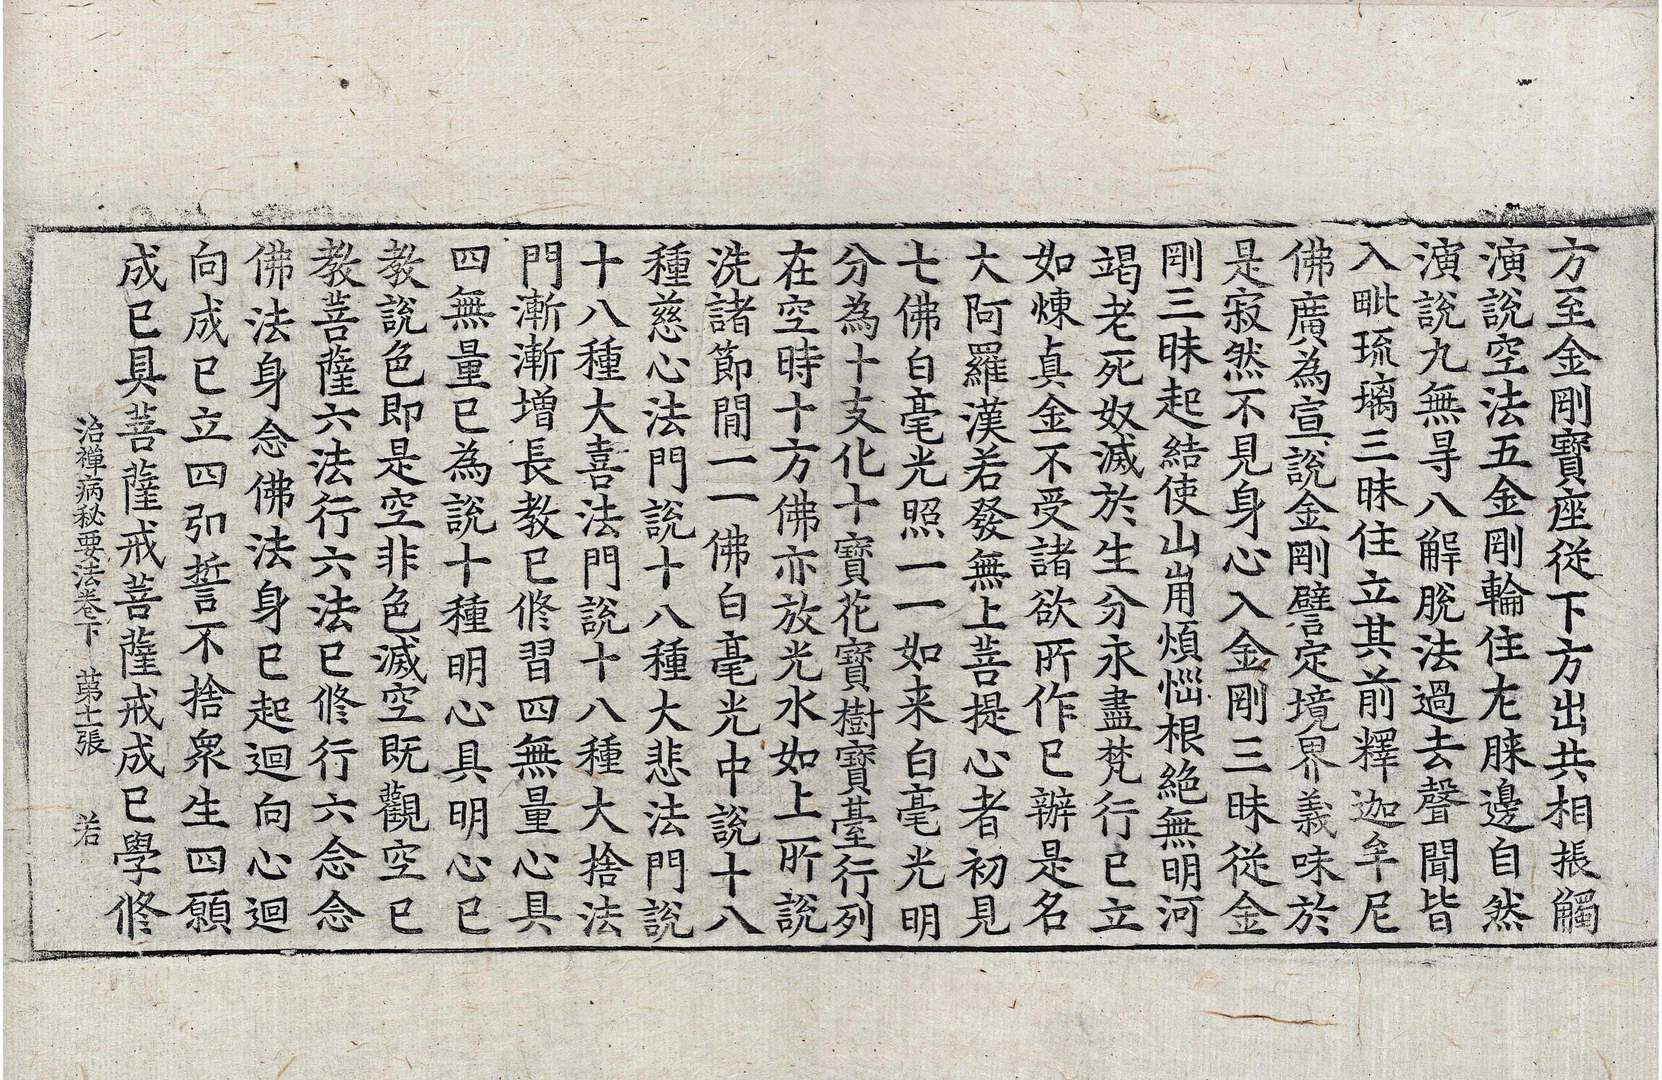 方至金剛寶座從下方出共相振觸
演說空法五金剛輪住左䏶邊自然
演說九無㝵八解脫法過去聲聞皆
入毗琉璃三昧住立其前釋迦牟尼
佛廣為宣說金剛譬定境界義味於
是寂然不見身心入金剛三昧從金
剛三昧起結使山崩煩惱根絶無明河
竭老死奴滅於生分永盡梵行已立
如煉真金不受諸欲所作已辦是名
大阿羅漢若發無上菩提心者初見
七佛白毫光照一一如来白毫光明
分為十支化十寶花寶樹寶臺行列
在空時十方佛亦放光水如上所說
洗諸節間一一佛白毫光中說十八
種慈心法門說十八種大悲法門說
十八種大喜法門說十八種大捨法
門漸漸增長教已修習四無量心具
四無量已為說十種明心具明心已
教說色即是空非色滅空既觀空已
教菩薩六法行六法已修行六念念
佛法身念佛法身已起迴向心迴
向成已立四弘誓不捨衆生四願
成已具菩薩戒菩薩戒成已學修
治禪病秘要法卷下 苐十一張 若